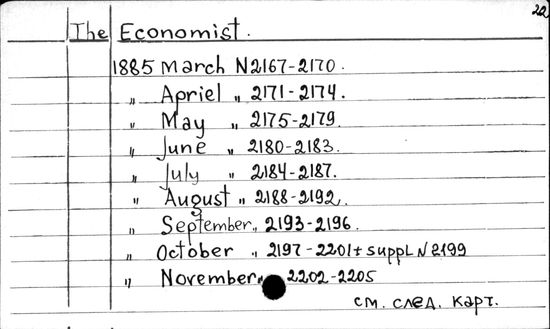 22
The Economist.
1885 March N2167-2170.
„ Apriel „ 2171-2174.
„ May „ 2175-2179.
„ June „ 2180-2183.
„ July „ 2184-2187.
„ August „ 2188-2192.
„ September „ 2193-2196.
„ October „ 2197-2201+suppl N2199
„ November „ 2202-2205
см. след. карт.